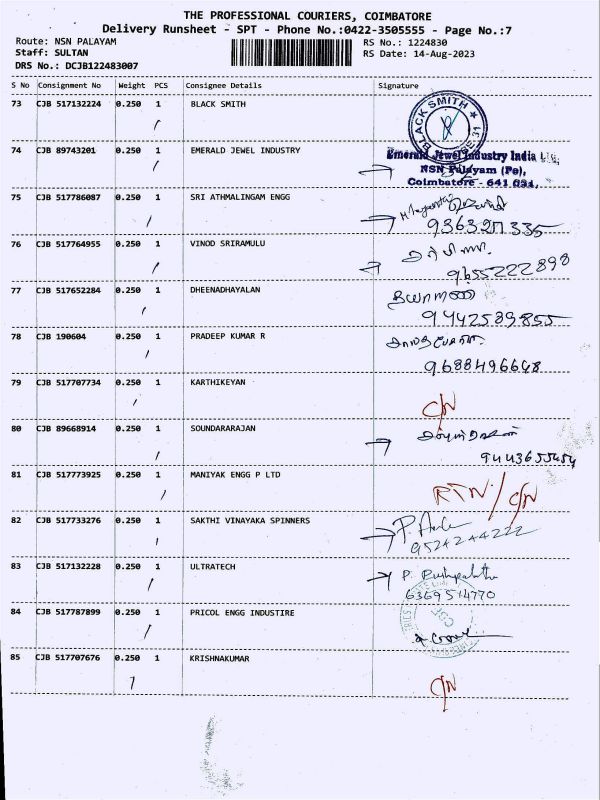 THE PROFESSIONAL COURIERS, COIMBATORE
Delivery Runsheet - SPT - Phone No.:0422-3505555 - Page No.:7
Route: NSN PALAYAM RS No.: 1224830
Staff: SULTAN RS Date: 14-Aug-2023
DRS No.: DCJB122483007
S No Consignment No Weight PCS Consignee Details Signature
73 CJB 517132224 0.250 1 BLACK SMITH
BLACK SMITH
74 CJB 89743201 0.250 1 EMERALD JEWEL INDUSTRY
Emerald Jewel Industry India
NSN Palayam (Po),
Coimbatore - 641 031.
75 CJB 517786087 0.250 1 SRI ATHMALINGAM ENGG
9363271335
76 CJB 517764955 0.250 1 VINOD SRIRAMULU
9655222898
77 CJB 517652284 0.250 1 DHEENADHAYALAN
9442589855
78 CJB 190604 0.250 1 PRADEEP KUMAR R
9688496648
79 CJB 517707734 0.250 1 KARTHIKEYAN
C/N
80 CJB 89668914 0.250 1 SOUNDARARAJAN
9443655454
81 CJB 517773925 0.250 1 MANIYAK ENGG P LTD
RTN/C/N
82 CJB 517733276 0.250 1 SAKTHI VINAYAKA SPINNERS
9524244222
83 CJB 517132228 0.250 1 ULTRATECH
P. Pushpalatha
6369514770
84 CJB 517787899 0.250 1 PRICOL ENGG INDUSTIRE
85 CJB 517707676 0.250 1 KRISHNAKUMAR
C/N